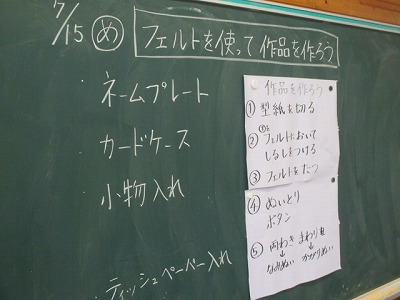 7/15 め フェルトを使って作品を作ろう
ネームプレート
カードケース
小物入れ
ティッシュペーパー入れ
作品を作ろう
① 型紙を切る
② フェルトにおいて
しるしをつける
③ フェルトをたつ
④ ぬいとり
ボタン
⑤ 両わき まわり
↓ ↓
なみぬい かがりぬい